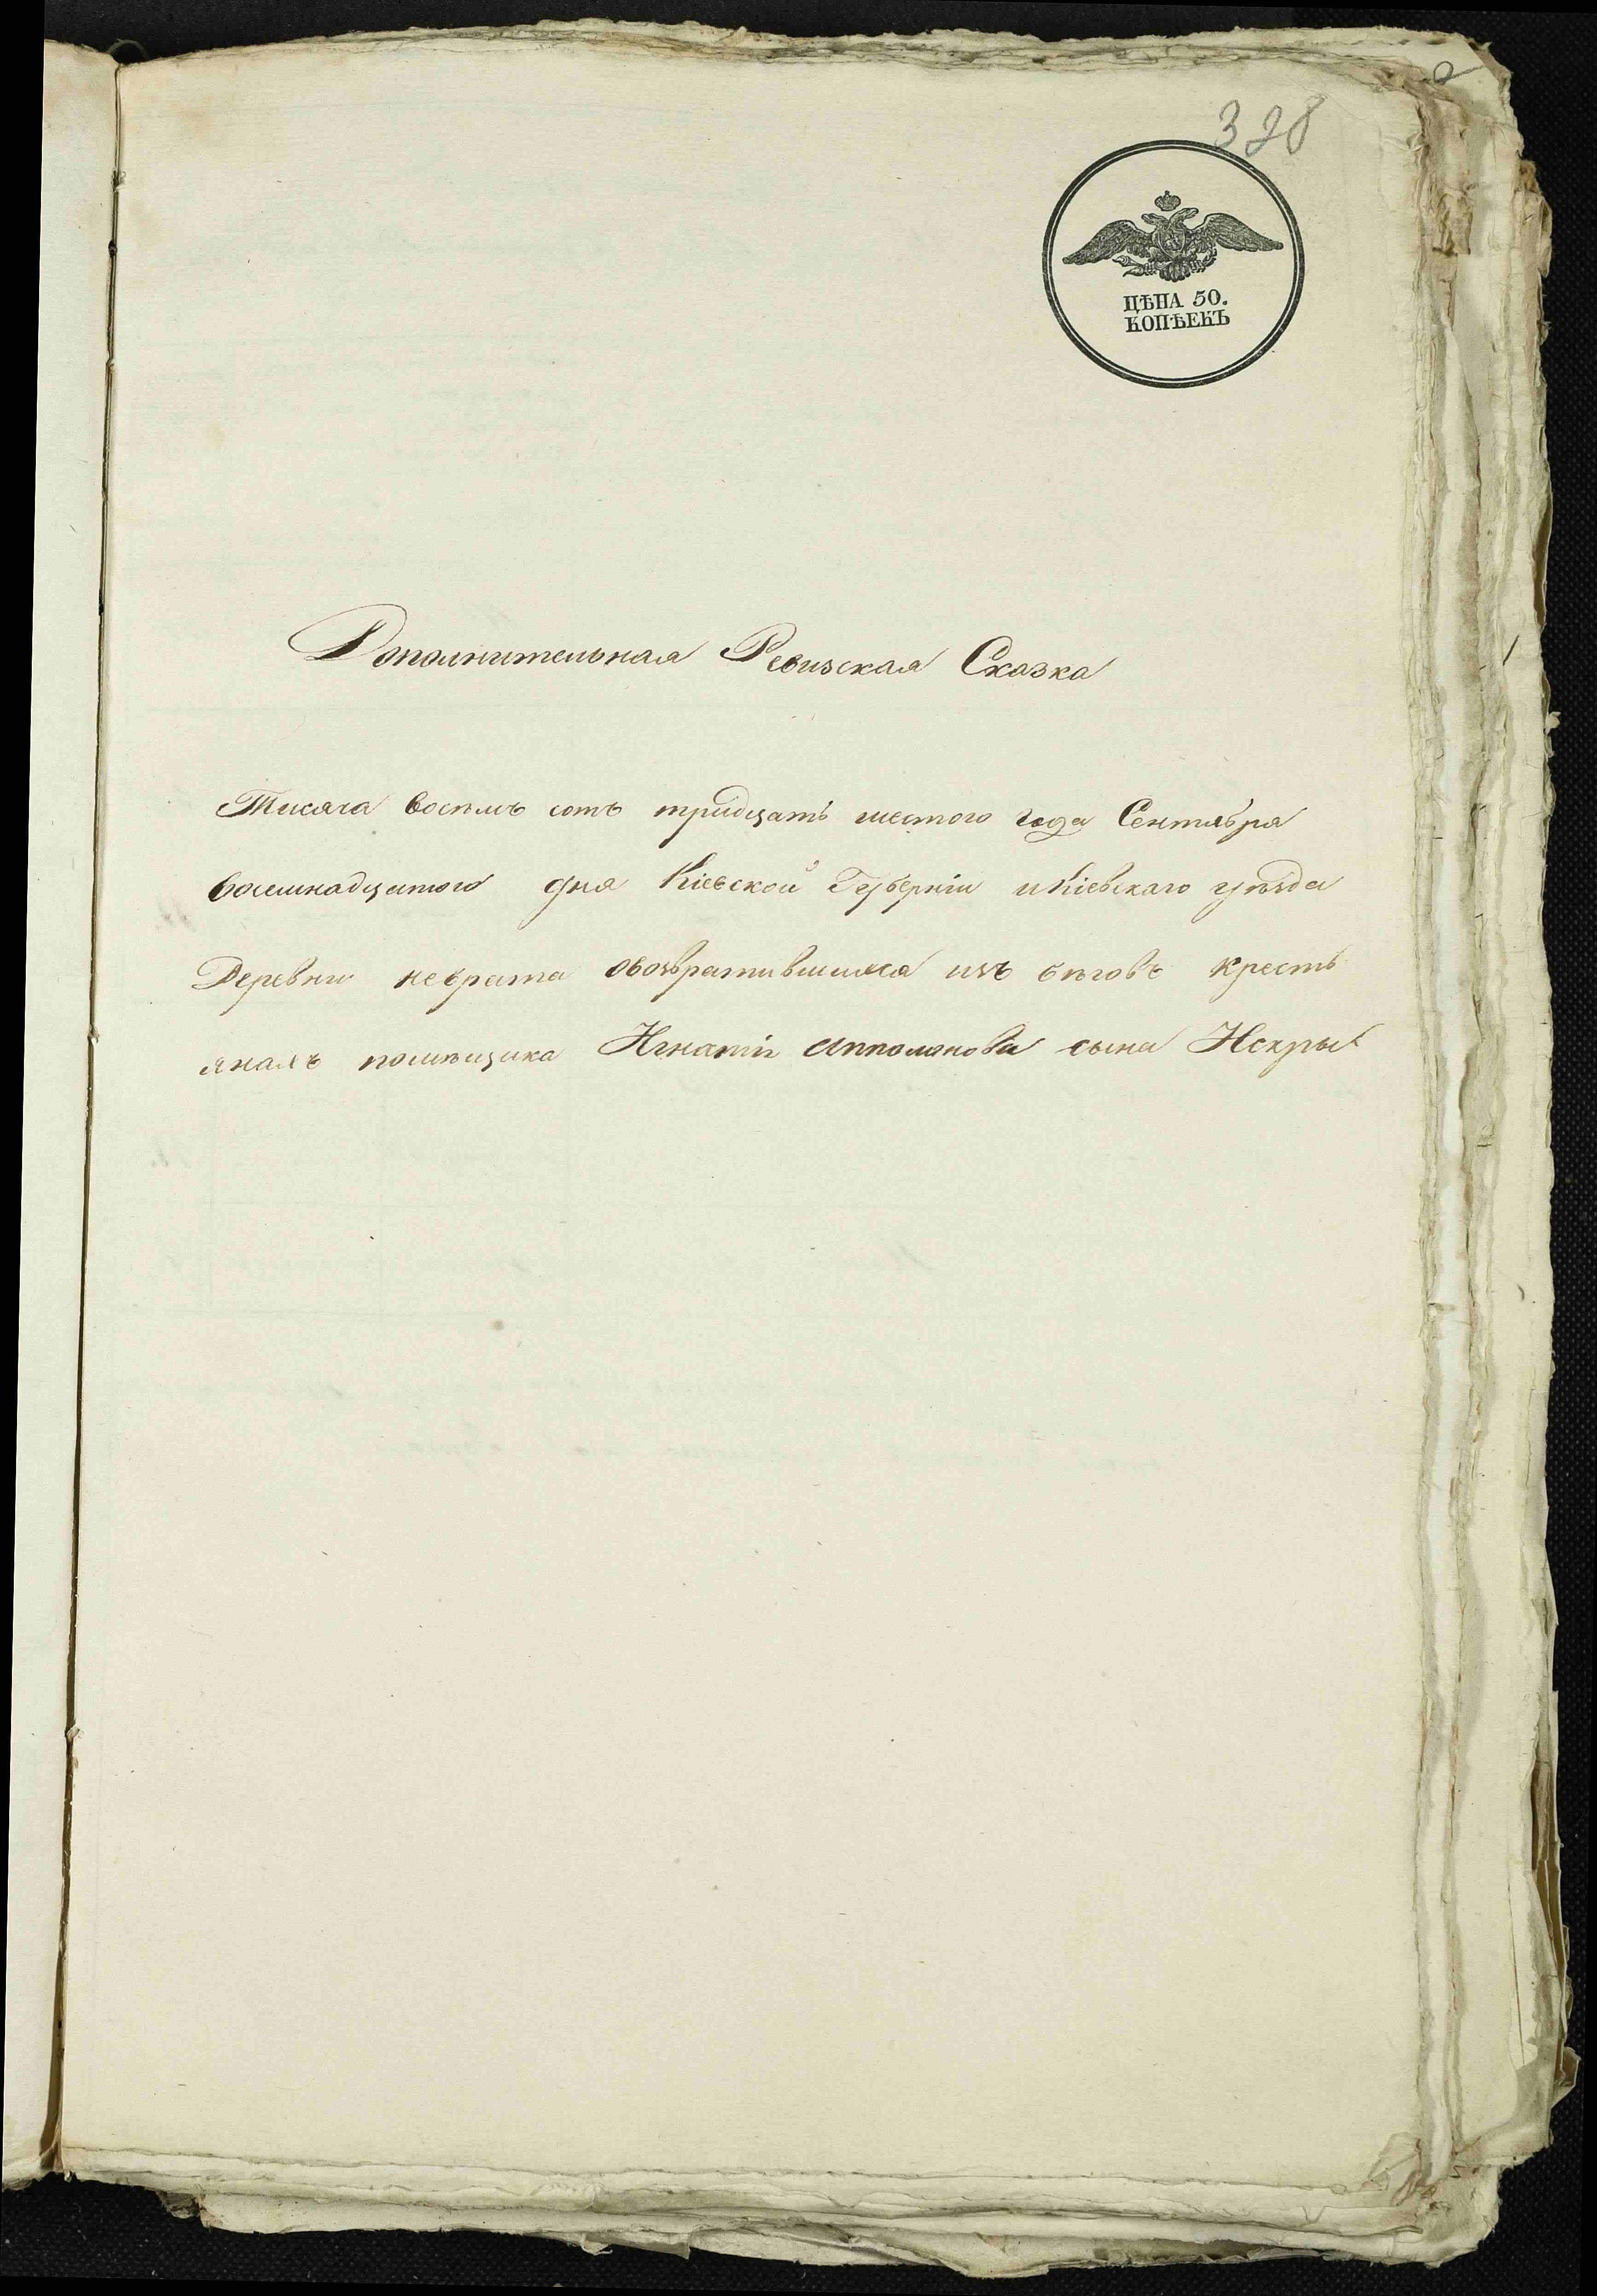 328
ЦѢНА 50.
КОПѢЕКЪ
Дополнительная Ревизская Сказка
Тисяча восемъ сотъ тридцать шестого года Сентября
восемнадцатого дня Кіевской Губерніи и Кіевскаго уѣзда
Деревни обозвратившихся изъ бѣговъ кресть
янахъ помѣщика Игнатія Апполонова сына Искры